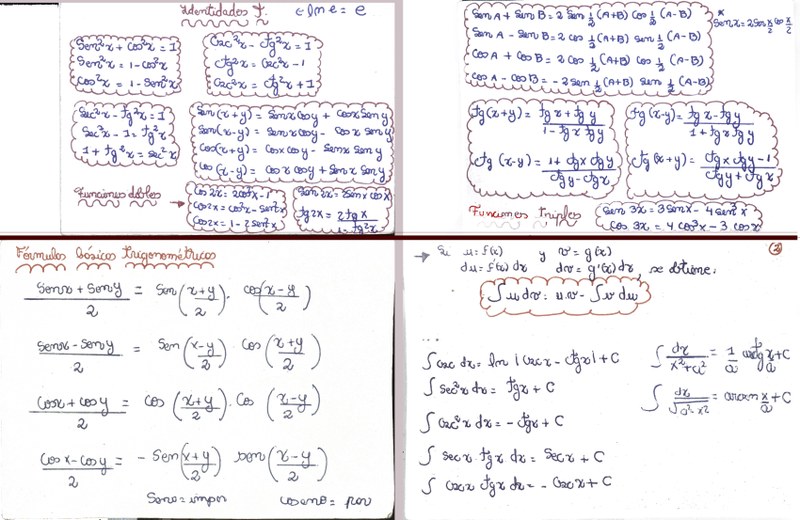 Identidades T.
e ln e = e
Sen²x + Cos²x = 1
Sen²x = 1 - cos²x
cos²x = 1 - Sen²x
Csc²x - ctg²x = 1
ctg²x = csc²x - 1
csc²x = ctg²x + 1
Sec²x - tg²x = 1
Sec²x - 1 = tg²x
1 + tg²x = sec²x
Sen(x+y) = Senx cosy + cosx Seny
Sen(x-y) = Senx cosy - cosx seny
cos(x+y) = cosx cosy - Senx seny
cos(x-y) = cosx cosy + Senx Seny
Funciones dobles
cos2x = 2cos²x - 1
cos2x = cos²x - sen²x
Cos2x = 1 - 2Sen²x
Sen2x = 2Senx cosx
tg2x = 2tgx / 1 - tg²x
Sen A + Sen B = 2 Sen ½ (A+B) Cos ½ (A-B)
Sen A - Sen B = 2 cos ½ (A+B) Sen ½ (A-B)
Cos A + Cos B = 2 Cos ½ (A+B) Cos ½ (A-B)
Cos A - Cos B = -2 Sen ½ (A+B) Sen ½ (A-B)
* Sen x = 2 Sen x/2 cos x/2
tg(x+y) = tgx + tgy / 1 - tgx tgy
ctg(x-y) = 1 + ctgx ctgy / ctgy - ctgx
tg(x-y) = tgx - tgy / 1 + tgx tgy
ctg(x+y) = ctgx ctgy - 1 / ctgy + ctgx
Funciones Triples
Sen 3x = 3 Senx - 4 Sen³x
Cos 3x = 4 cos³x - 3 cosx
Fórmulas básicas trigonométricas
Senx + Seny / 2 = Sen (x+y / 2) . cos (x-y / 2)
Senx - Seny / 2 = Sen (x-y / 2) Cos (x+y / 2)
Cosx + Cosy / 2 = Cos (x+y / 2) . Cos (x-y / 2)
Cosx - Cosy / 2 = - Sen (x+y / 2) Sen (x-y / 2)
Seno = impar coseno = par
→ Si u = f(x) y v = g(x)
(2)
du = f'(x) dx dv = g'(x) dx, se obtiene:
∫ u dv = uv - ∫ v du
...
∫ csc dx = ln | cscx - ctgx | + C
∫ Sec²x dx = tgx + C
∫ Csc²x dx = - ctgx + C
∫ Sec x tgx dx = Sec x + C
∫ Csc x ctgx dx = - Csc x + C
∫ dx / x² + a² = 1/a arctg x/a + C
∫ dx / √a² - x² = arcsen x/a + C